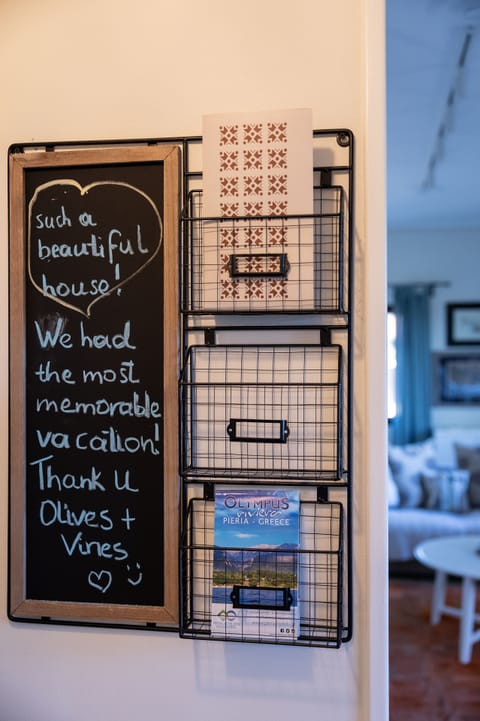 such a
beautiful
house!
We had
the most
memorable
vacation!
Thank U
Olives +
Vines
OLYMPUS
riviera
PIERIA - GREECE